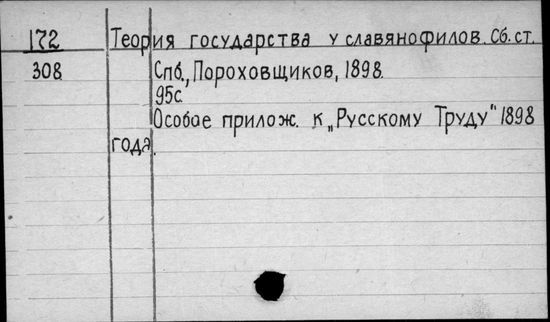 172 Теория государства у славянофилов. Сб. ст.
308 Спб., Пороховщиков, 1898.
95с.
Особое прилож. к „Русскому Труду" 1898
года.